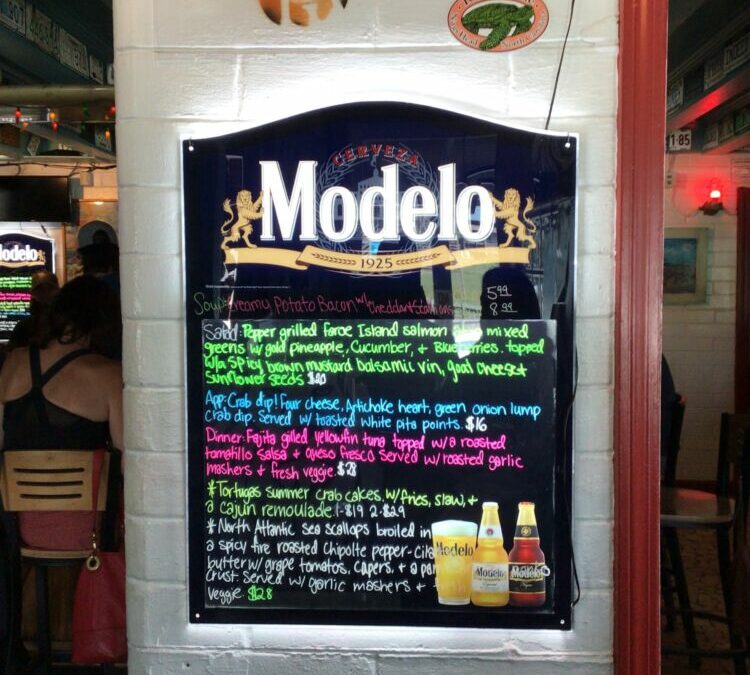 CERVEZA
Modelo
1925
Soup: Creamy Potato Bacon w/ Cheddar + Scallions 5.99
8.99
Salad: Pepper grilled faroe Island salmon mixed
greens w/ gold pineapple, Cucumber, + Blueberries. topped
w/a spicy brown mustard balsamic vin, goat cheese +
sunflower seeds $20
App: Crab dip! Four cheese, Artichoke heart, green onion lump
Crab dip. Served w/ toasted white pita points. $16
Dinner: Fajita grilled yellowfin tuna topped w/a roasted
tomatillo salsa + queso fresco served w/ roasted garlic
mashers + fresh veggie. $28
* Tortugas summer crab cakes, w/ fries, slaw, +
a cajun remoulade. 1-$19 2-$29
* North Atlantic sea scallops broiled in
a spicy fire roasted Chipolte pepper-
butter w/ grape tomatos, capers, + a
crust. Served w/ garlic mashers +
veggie. $28
Modelo
Modelo
Modelo
odelo
1-85